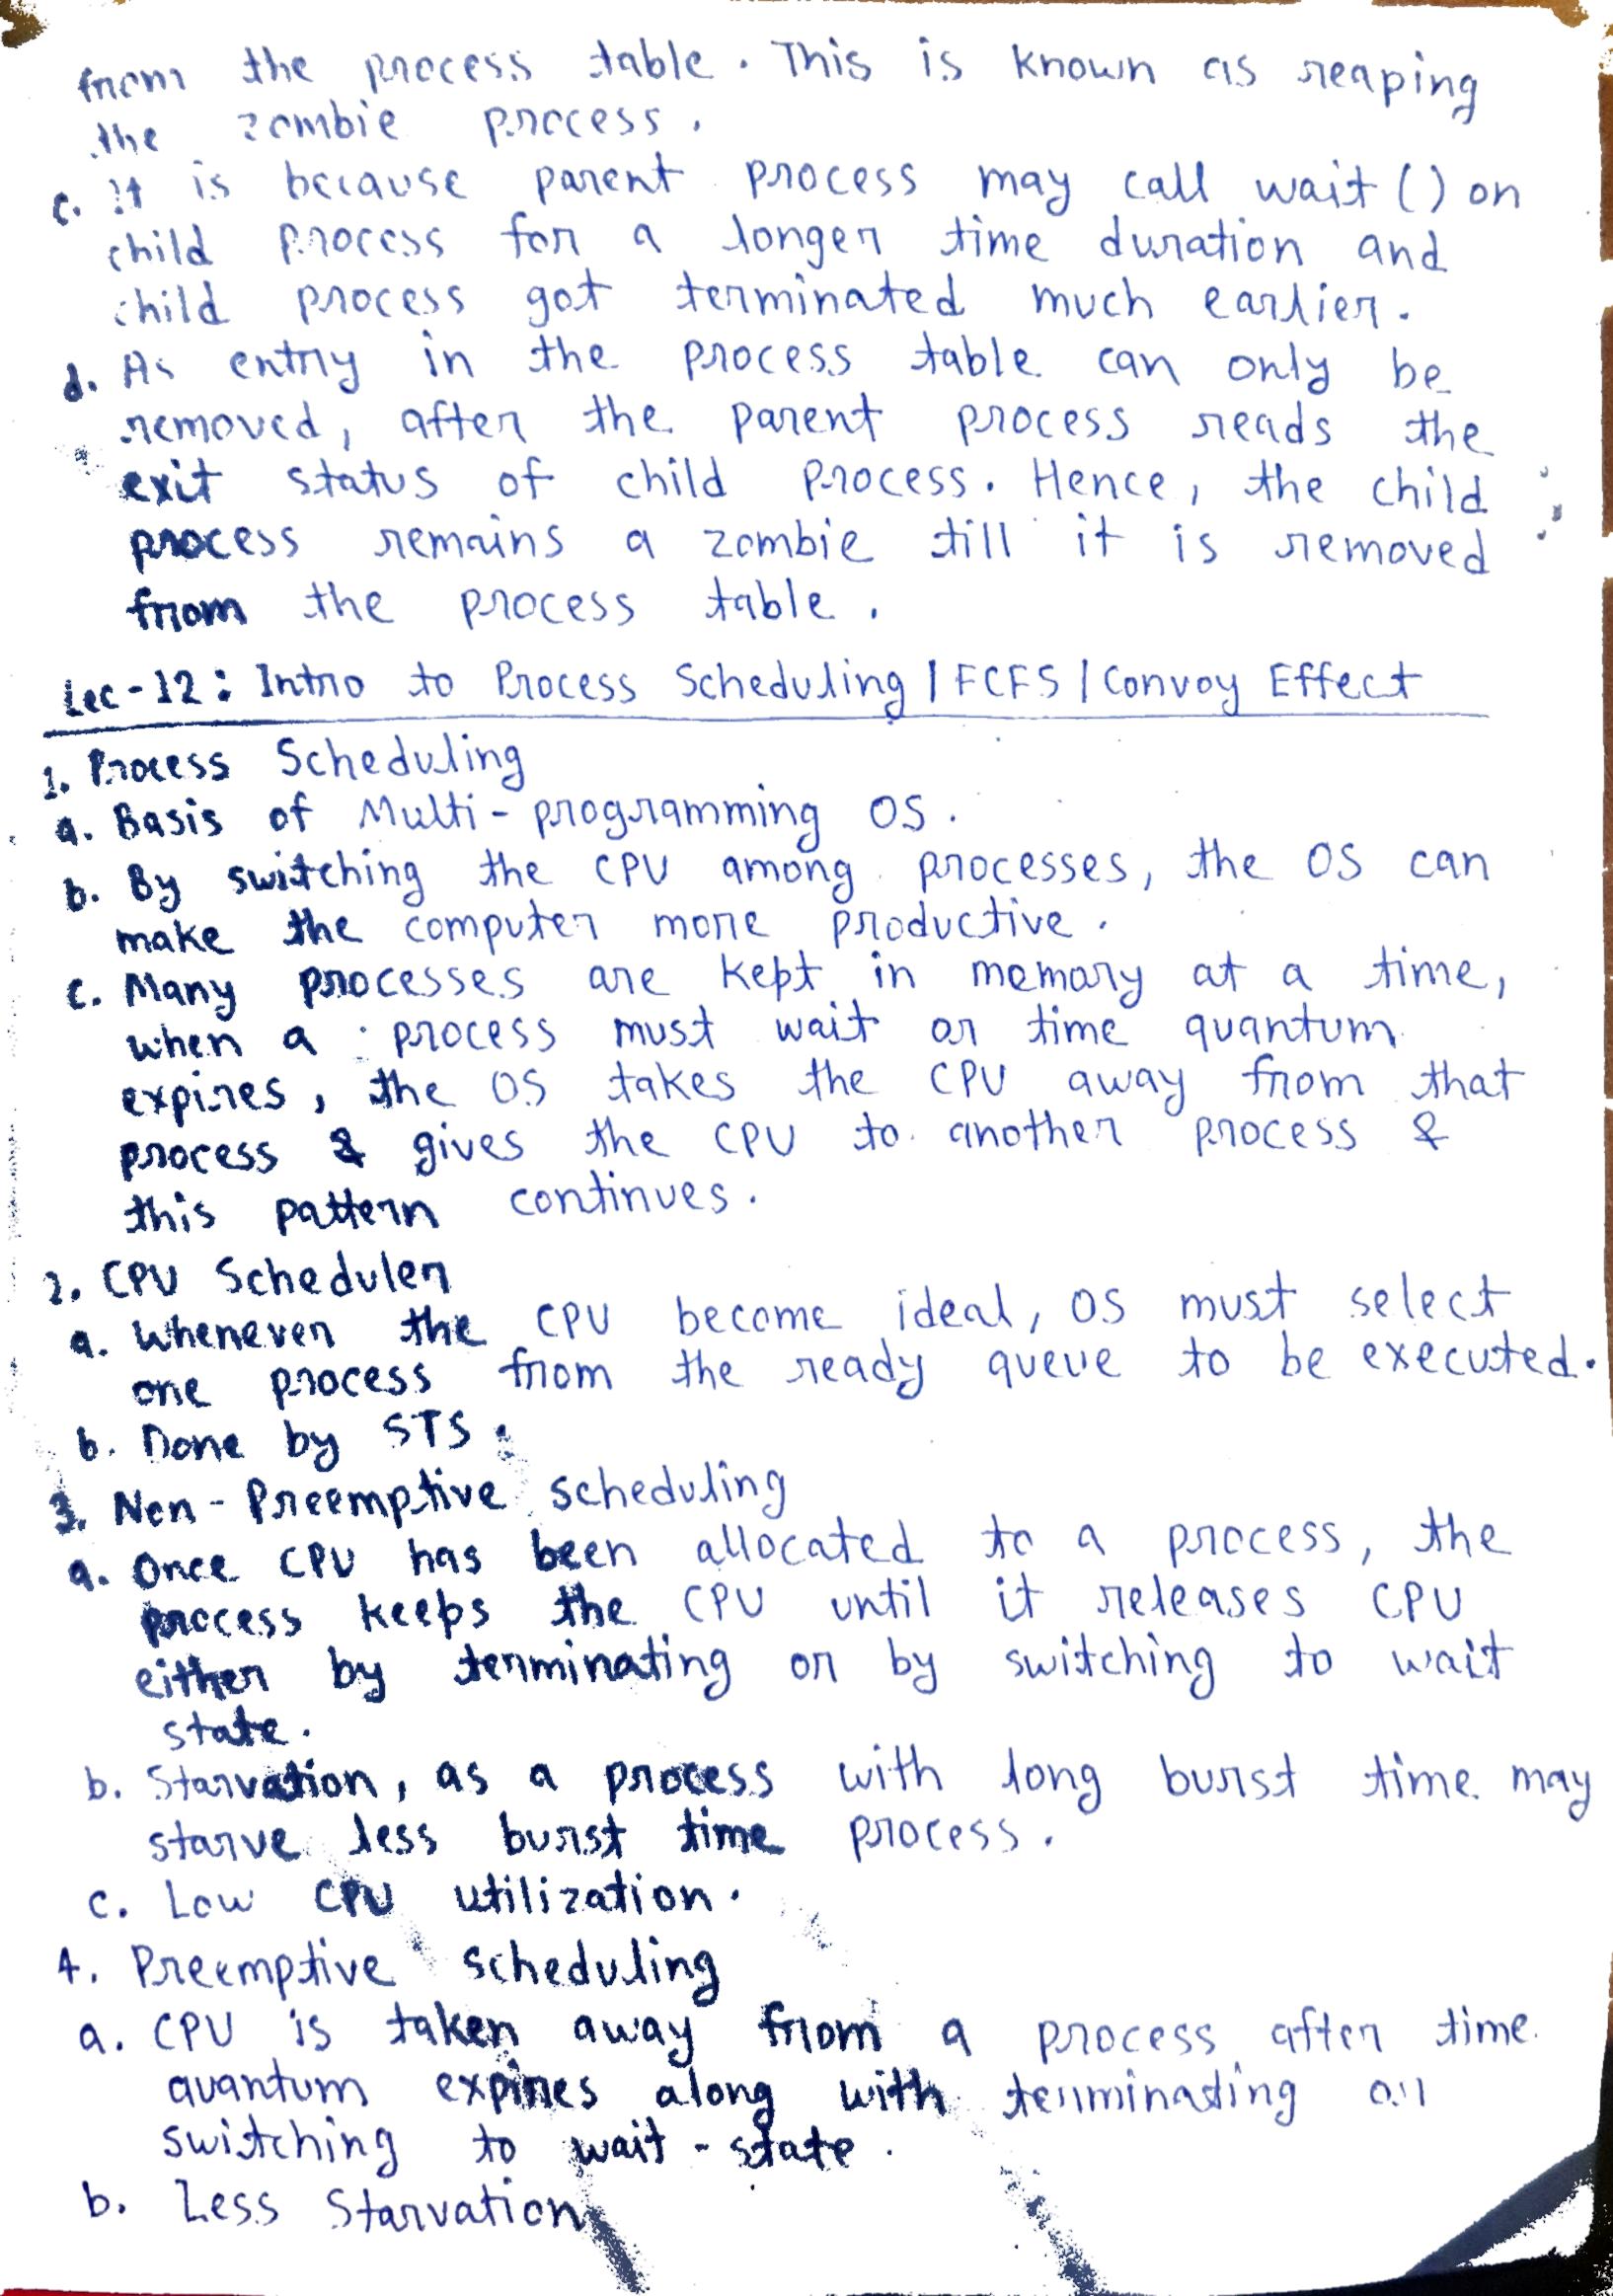 from the process table. This is known as reaping
the zombie process.
c. It is because parent process may call wait() on
child process for a longer time duration and
child process got terminated much earlier.
d. As entry in the process table can only be
removed, after the parent process reads the
exit status of child process. Hence, the child
process remains a zombie till it is removed
from the process table.
Lec-12: Intro to Process Scheduling | FCFS | Convoy Effect
1. Process Scheduling
a. Basis of Multi-programming OS.
b. By switching the CPU among processes, the OS can
make the computer more productive.
c. Many processes are kept in memory at a time,
when a process must wait or time quantum
expires, the OS takes the CPU away from that
process & gives the CPU to another process &
this pattern continues.
2. CPU Scheduler
a. Whenever the CPU become ideal, OS must select
one process from the ready queue to be executed.
b. Done by STS.
3. Non-Preemptive scheduling
a. Once CPU has been allocated to a process, the
process keeps the CPU until it releases CPU
either by terminating or by switching to wait
state.
b. Starvation, as a process with long burst time may
starve less burst time process.
c. Low CPU utilization.
4. Preemptive scheduling
a. CPU is taken away from a process after time
quantum expires along with terminating or
switching to wait-state.
b. Less Starvation